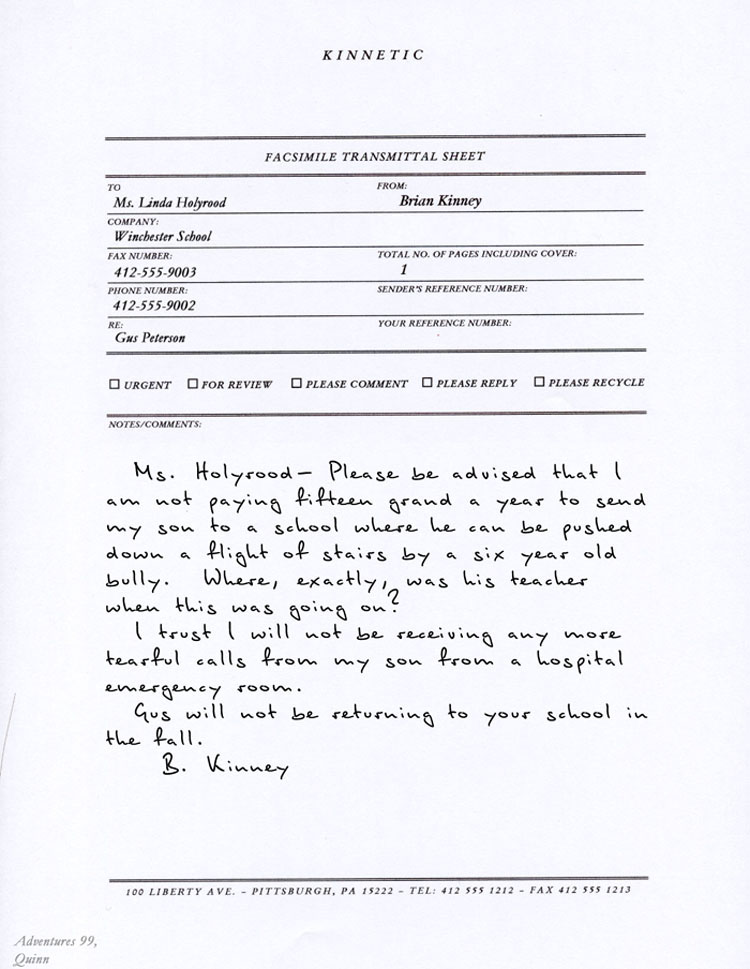 KINNETIC
FACSIMILE TRANSMITTAL SHEET
TO FROM:
Ms. Linda Holyrood Brian Kinney
COMPANY:
Winchester School
FAX NUMBER: TOTAL NO. OF PAGES INCLUDING COVER:
412-555-9003 1
PHONE NUMBER: SENDER'S REFERENCE NUMBER:
412-555-9002
RE: YOUR REFERENCE NUMBER:
Gus Peterson
☐ URGENT ☐ FOR REVIEW ☐ PLEASE COMMENT ☐ PLEASE REPLY ☐ PLEASE RECYCLE
NOTES/COMMENTS:
Ms. Holyrood— Please be advised that I
am not paying fifteen grand a year to send
my son to a school where he can be pushed
down a flight of stairs by a six year old
bully. Where, exactly, was his teacher
when this was going on?
I trust I will not be receiving any more
tearful calls from my son from a hospital
emergency room.
Gus will not be returning to your school in
the fall.
B. Kinney
100 LIBERTY AVE. – PITTSBURGH, PA 15222 – TEL: 412 555 1212 – FAX 412 555 1213
Adventures 99,
Quinn